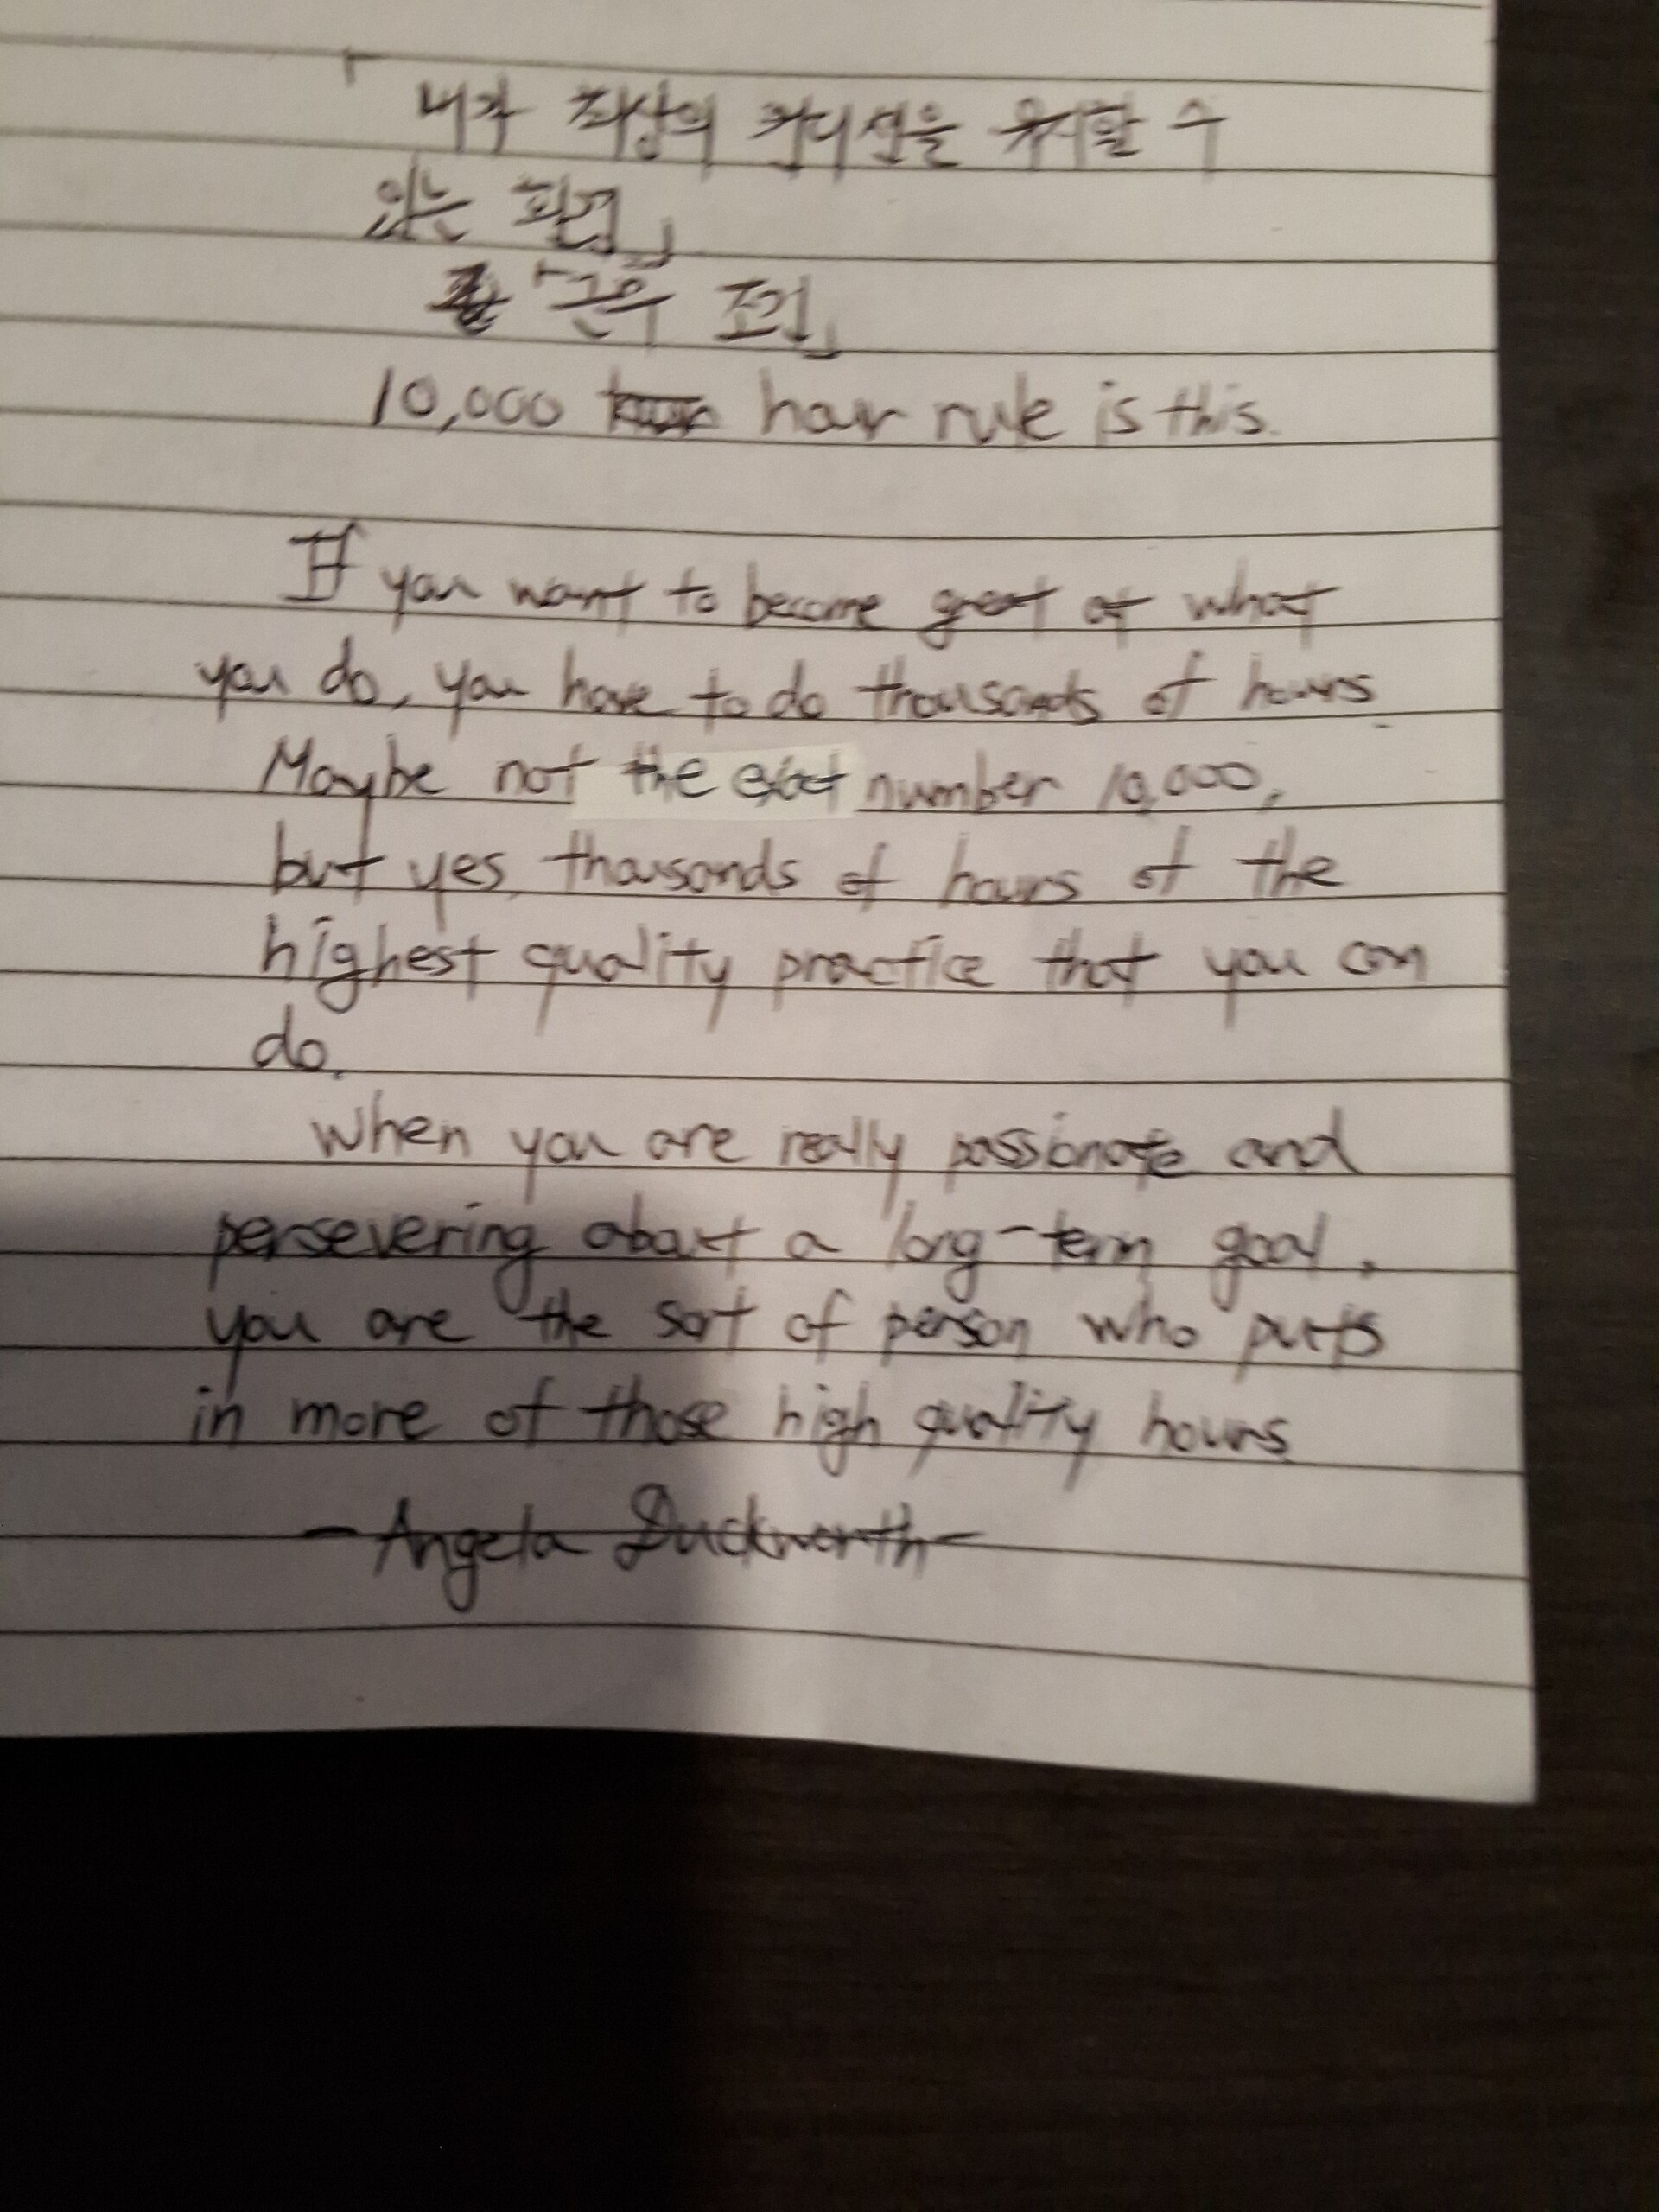 「내가 최상의 컨디션을 유지할 수
있는 환경」
「근무 조건」
10,000 hour rule is this.
If you want to become great at what
you do, you have to do thousands of hours.
Maybe not the exact number 10,000,
but yes, thousands of hours of the
highest quality practice that you can
do.
When you are really passionate and
persevering about a long-term goal,
you are the sort of person who puts
in more of those high quality hours
- Angela Duckworth -